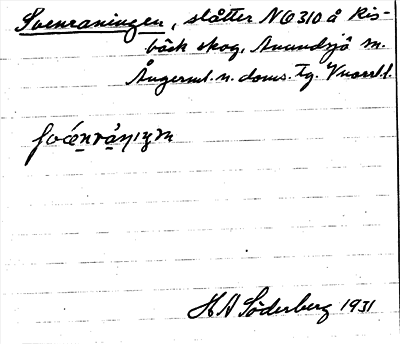 Svenraningen, slåtter N6310 å Ris-
bäck skog, Anundsjö sn.
Ångerml. n. doms. tg. V
H A Söderberg 1931